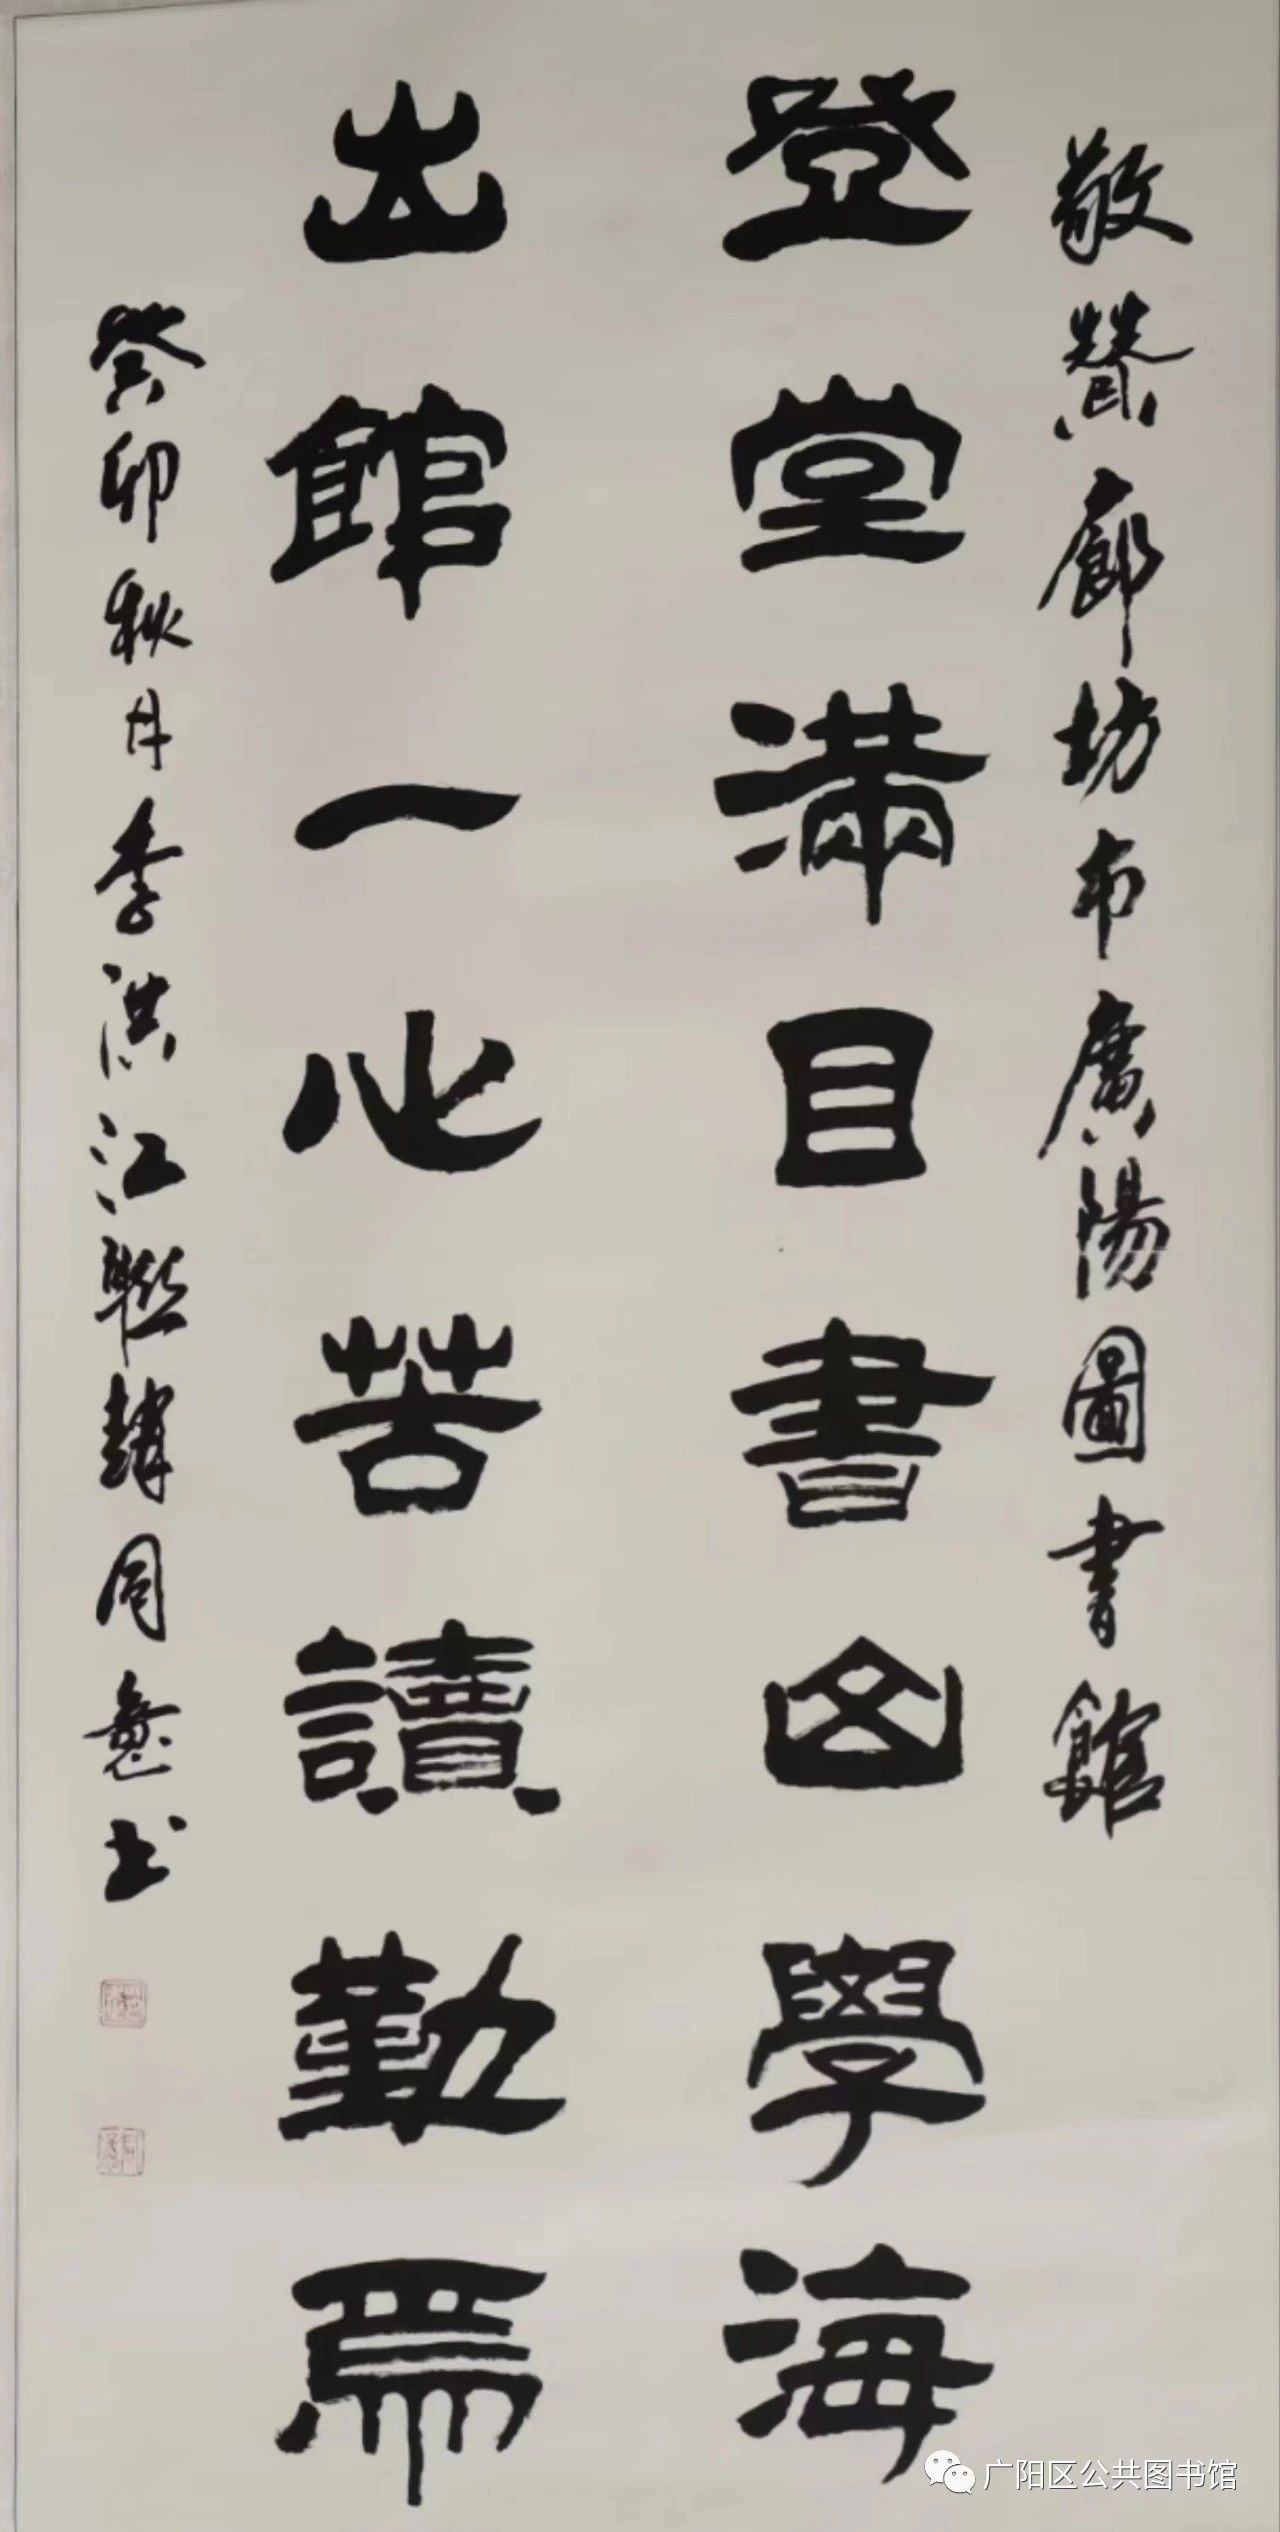 敬賛廊坊市廣陽圖書館
登堂滿目書山學海
出館一心苦讀勤焉
癸卯秋月李洪江聯韓同彝书
广阳区公共图书馆